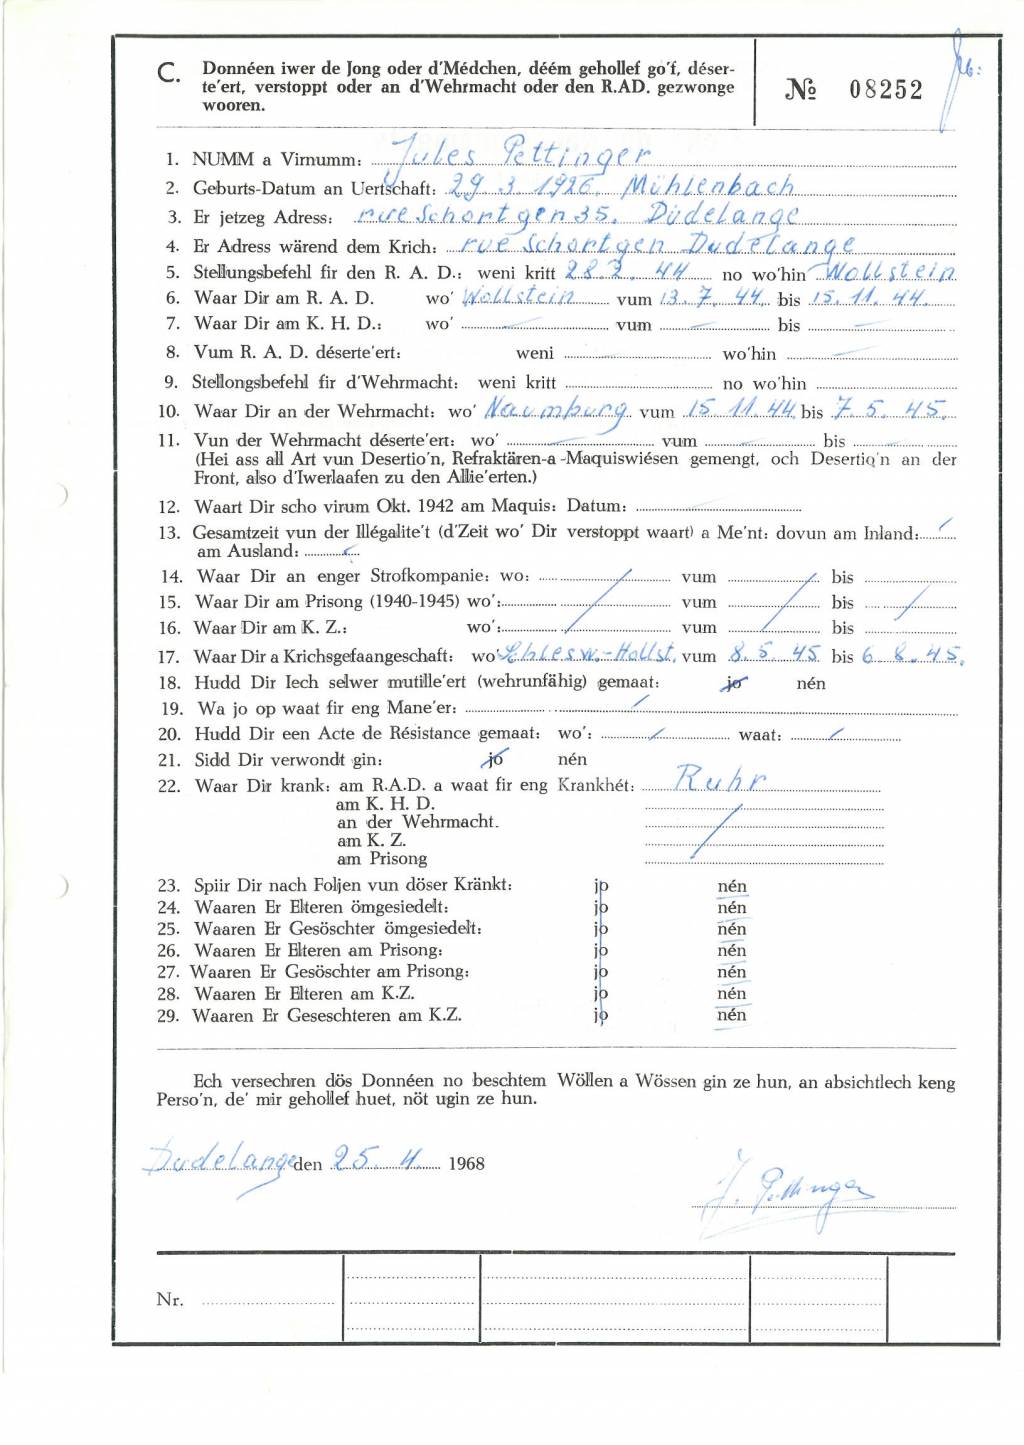 C. Donnéen iwer de Jong oder d'Médchen, déém gehollef go'f, déser-
te'ert, verstoppt oder an d'Wehrmacht oder den R.AD. gezwonge
wooren.
№ 08252
1. NUMM a Virnumm: Jules Pettinger
2. Geburts-Datum an Uertschaft: 29.3.1926. Mühlenbach
3. Er jetzeg Adress: rue Schortgen 35. Düdelange
4. Er Adress wärend dem Krich: rue Schortgen Dudelange
5. Stellungsbefehl fir den R. A. D.: weni kritt 28 7. 44 no wo'hin Wollstein
6. Waar Dir am R. A. D. wo' Wollstein vum 13. 7. 44. bis 15. 11. 44.
7. Waar Dir am K. H. D.: wo' vum bis
8. Vum R. A. D. déserte'ert: weni wo'hin
9. Stellongsbefehl fir d'Wehrmacht: weni kritt no wo'hin
10. Waar Dir an der Wehrmacht: wo' Naumburg vum 15. 11. 44. bis 7. 5. 45.
11. Vun der Wehrmacht déserte'ert: wo' vum bis
(Hei ass all Art vun Desertio'n, Refraktären-a -Maquiswiésen gemengt, och Desertio'n an der
Front, also d'Iwerlaafen zu den Allie'erten.)
12. Waart Dir scho virum Okt. 1942 am Maquis: Datum:
13. Gesamtzeit vun der Illégalite't (d'Zeit wo' Dir verstoppt waart) a Me'nt: dovun am Inland:
am Ausland:
14. Waar Dir an enger Strofkompanie: wo: vum bis
15. Waar Dir am Prisong (1940-1945) wo': vum bis
16. Waar Dir am K. Z.: wo': vum bis
17. Waar Dir a Krichsgefaangeschaft: wo' Schlesw.-Hollst. vum 8. 5. 45 bis 6. 8. 45.
18. Hudd Dir Iech selwer mutille'ert (wehrunfähig) gemaat: jo nén
19. Wa jo op waat fir eng Mane'er:
20. Hudd Dir een Acte de Résistance gemaat: wo': waat:
21. Sidd Dir verwondt gin: jo nén
22. Waar Dir krank: am R.A.D. a waat fir eng Krankhét: Ruhr
am K. H. D.
an der Wehrmacht.
am K. Z.
am Prisong
23. Spiir Dir nach Foljen vun döser Kränkt: jo nén
24. Waaren Er Elteren ömgesiedelt: jo nén
25. Waaren Er Gesöschter ömgesiedelt: jo nén
26. Waaren Er Elteren am Prisong: jo nén
27. Waaren Er Gesöschter am Prisong: jo nén
28. Waaren Er Elteren am K.Z. jo nén
29. Waaren Er Geseschteren am K.Z. jo nén
Ech versechren dös Donnéen no beschtem Wöllen a Wössen gin ze hun, an absichtlech keng
Perso'n, de' mir gehollef huet, nöt ugin ze hun.
Dudelange den 25. 4. 1968
J. Pettinger
Nr.